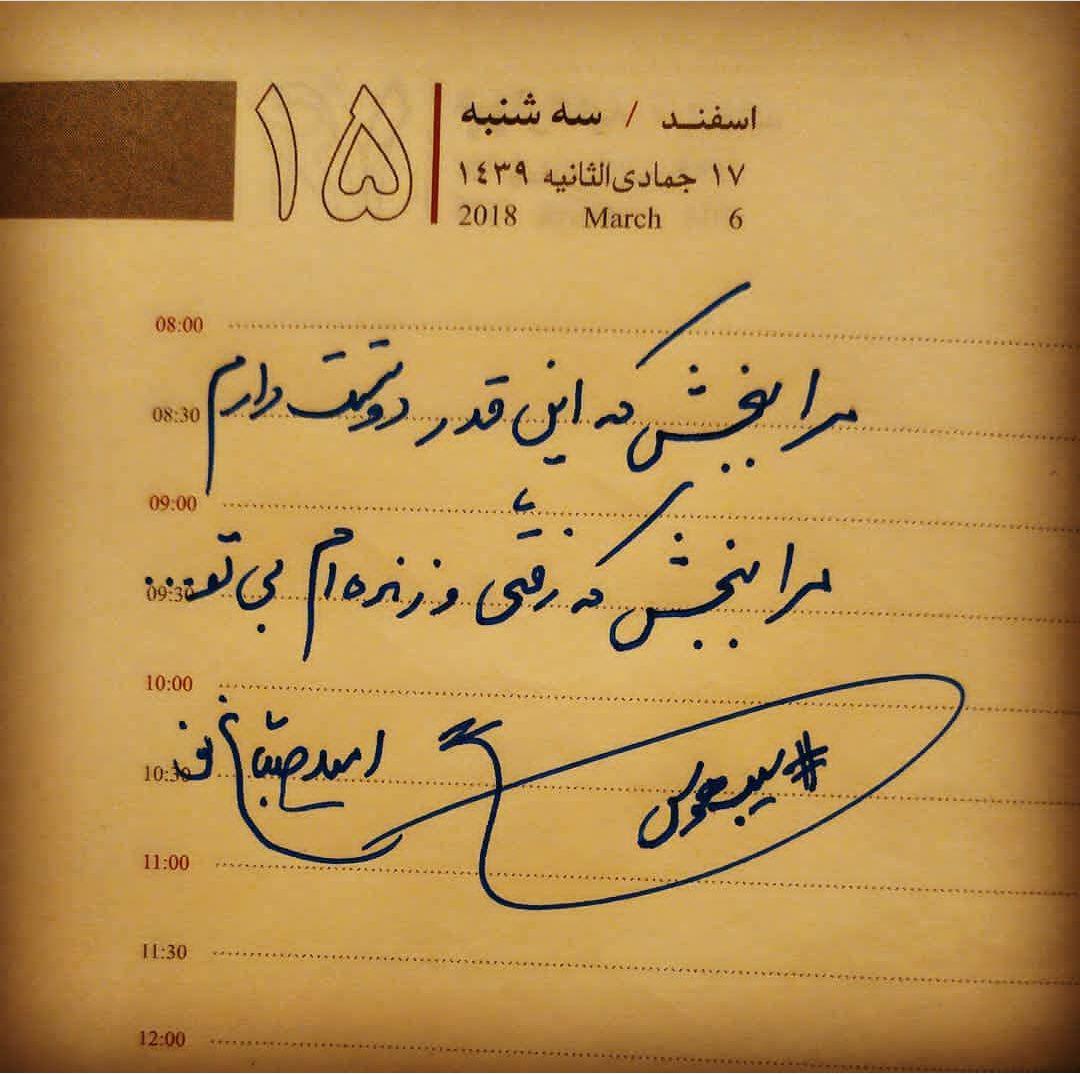 ۱۵
اسفند / سه شنبه
١٧ جمادی‌الثانیه ١٤٣٩
2018 March 6
08:00
مرا ببخش که این قدر دوستت دارم
08:30
09:00
مرا ببخش که رفتی و زنده ام بی تو...
09:30
10:00
امید صباغ نو
#سیب_هوس
10:30
11:00
11:30
12:00